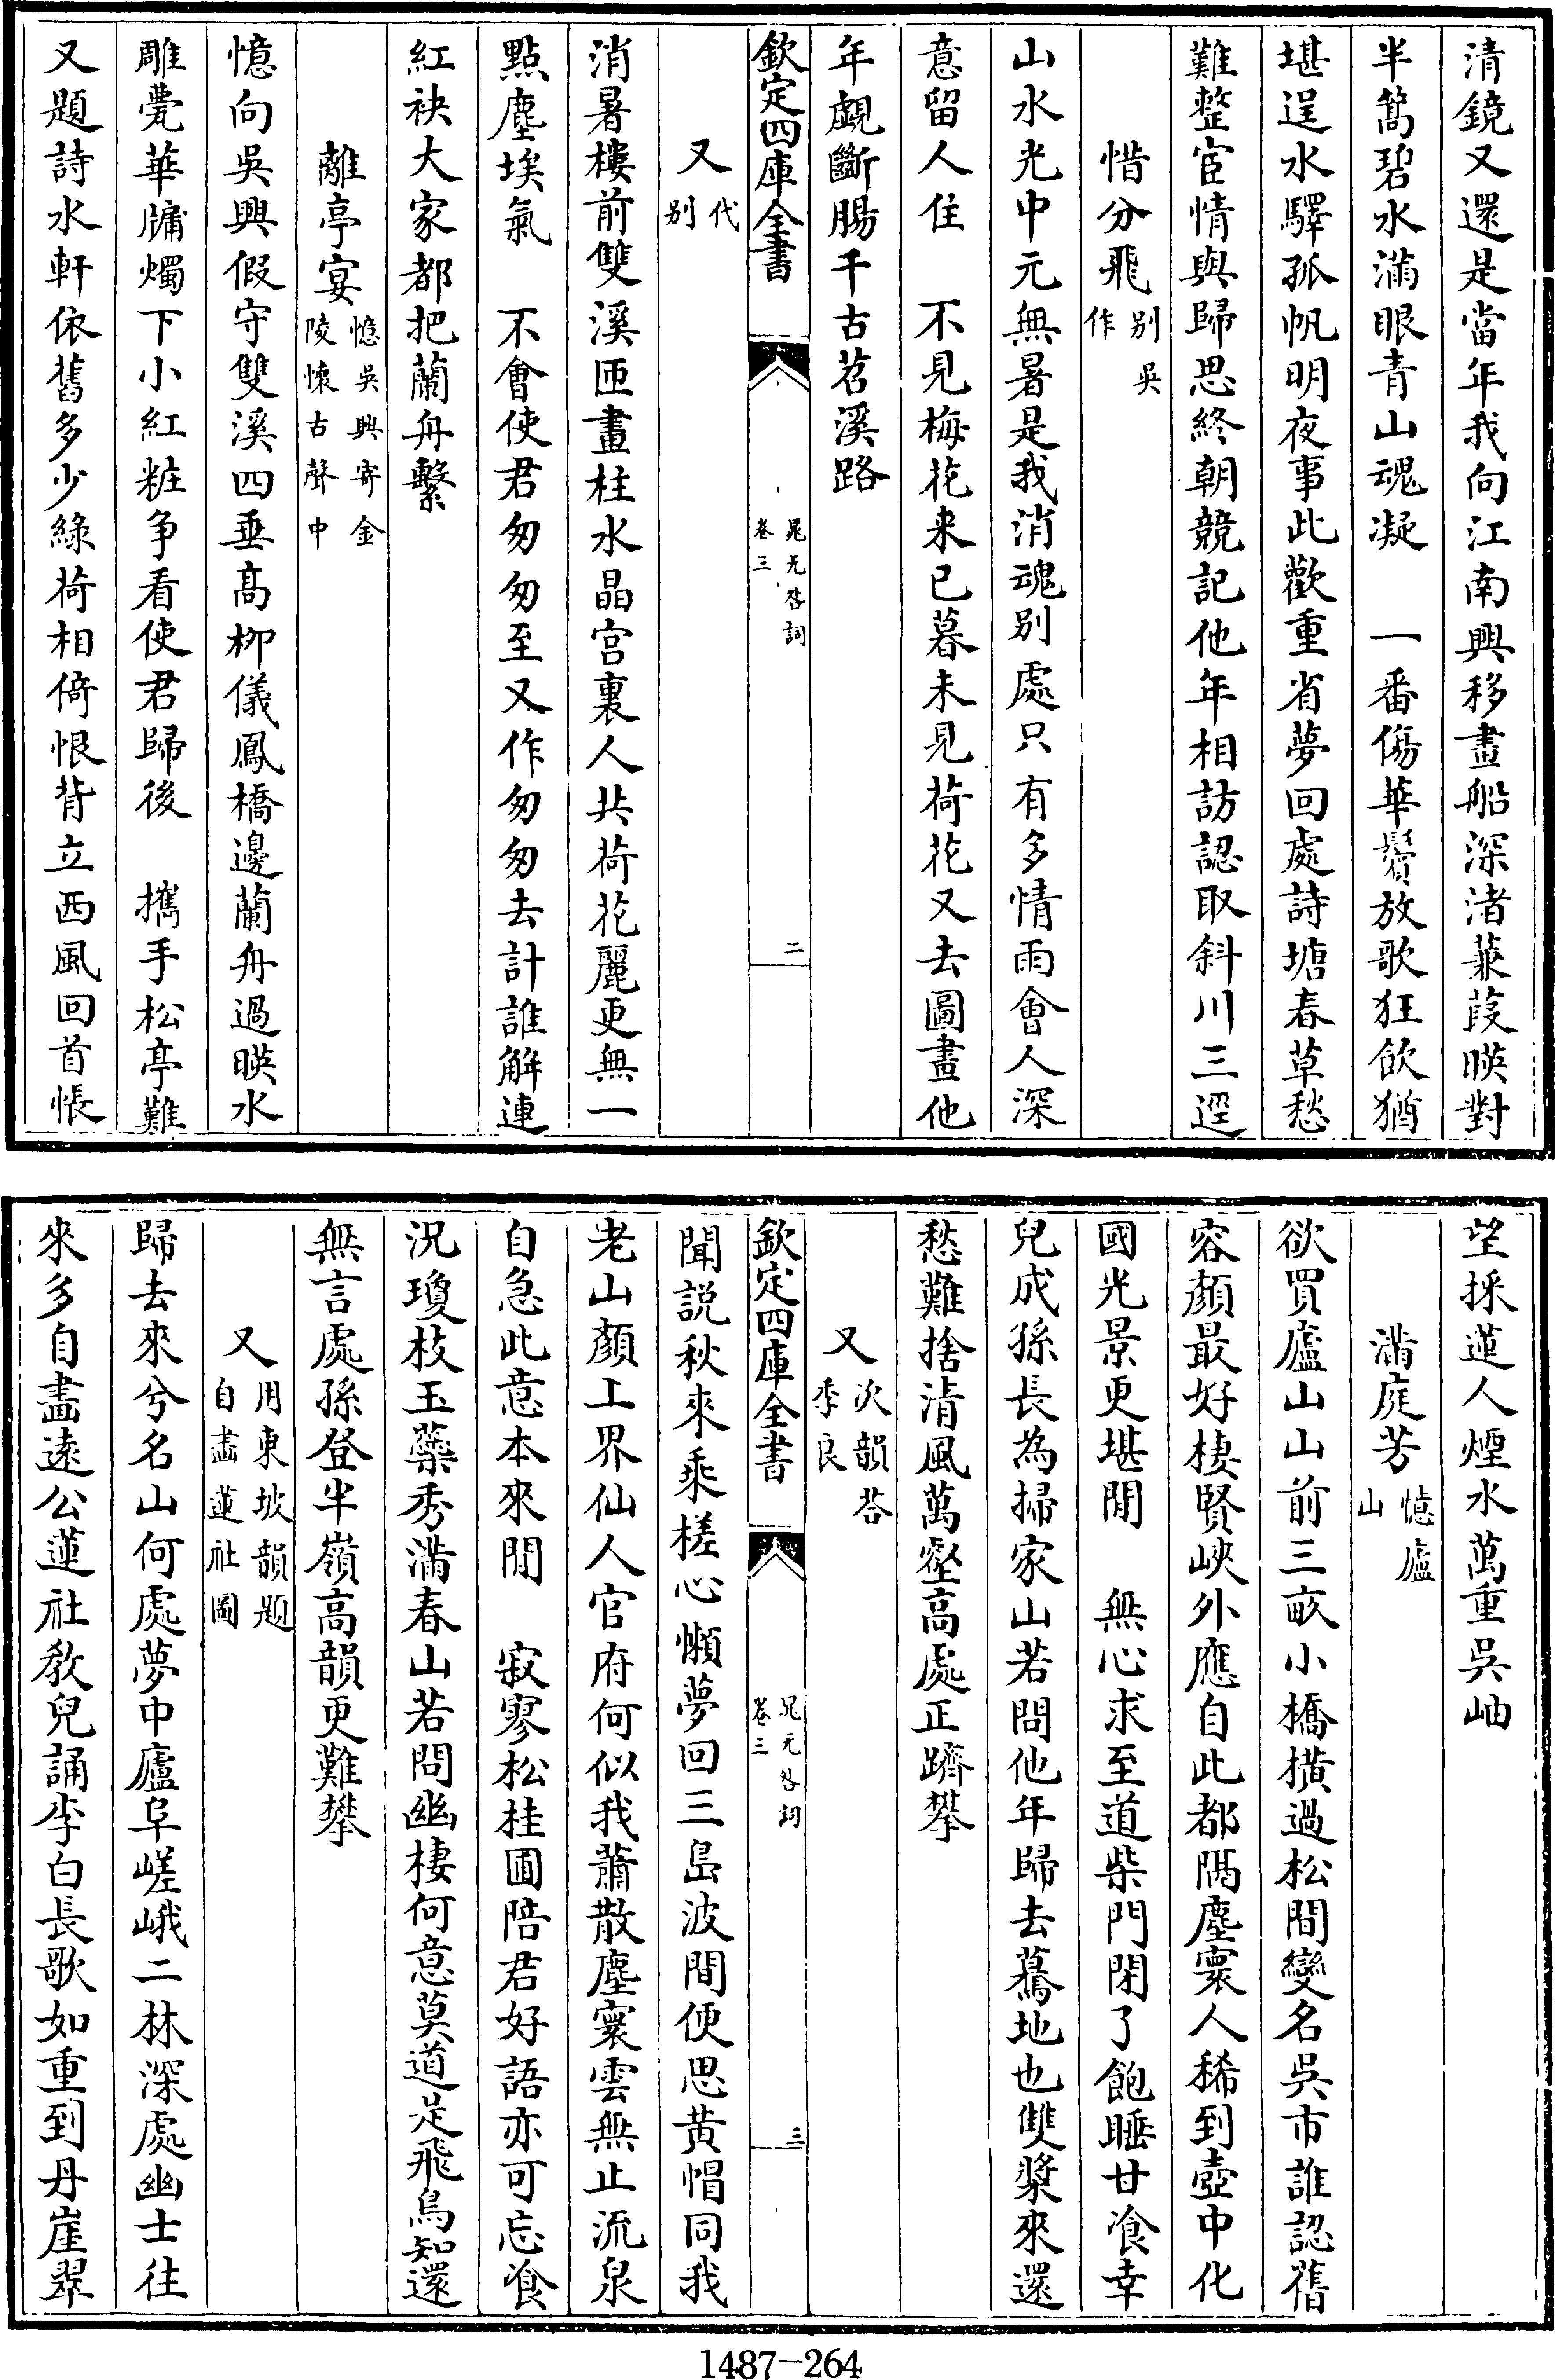 清鏡又還是當年我向江南興移畫船深渚蒹葭暎對
半篙碧水滿眼青山魂凝　一番傷華鬢放歌狂飲猶
堪逞水驛孤帆明夜事此歡重省夢回處詩塘春草愁
難整宦情與歸思終朝競記他年相訪認取斜川三逕
惜分飛别吳作
山水光中元無暑是我消魂别處只有多情雨會人深
意留人住　不見梅花来已暮未見荷花又去圖畫他
年覷斷腸千古苕溪路
欽定四庫全書　晁无咎詞卷三　二
又代别
消暑樓前雙溪匝畫柱水晶宫裏人共荷花麗更無一
點塵埃氣　不會使君匆匆至又作匆匆去計誰解連
紅袂大家都把蘭舟繫
離亭宴憶吳興寄金陵懐古聲中
憶向吳興假守雙溪四垂髙栁儀鳳橋邊蘭舟過暎水
雕甍華牖燭下小紅粧争看使君歸後　攜手松亭難
又題詩水軒依舊多少緑荷相倚恨背立西風回首悵
望採蓮人煙水萬重吳岫
滿庭芳憶廬山
欲買廬山山前三畝小橋横過松間變名吳市誰認舊
容顔最好棲賢峽外應自此都隔塵寰人稀到壺中化
國光景更堪閒　無心求至道柴門閉了飽睡甘飡幸
兒成孫長為掃家山若問他年歸去驀地也雙槳來還
愁難捨清風萬壑高處正躋攀
又次韻荅季良
欽定四庫全書　晁无咎詞卷三　三
聞説秋來乘槎心懶夢回三島波間便思黄帽同我
老山顔上界仙人官府何似我蕭散塵寰雲無止流泉
自急此意本來閒　寂寥松桂圃陪君好語亦可忘飡
況瓊枝玉蘂秀滿春山若問幽棲何意莫道足飛鳥知還
無言處孫登半嶺高韻更難攀
又用東坡韻題自畫蓮社圖
歸去來兮名山何處夢中廬阜嵯峨二林深處幽士往
來多自畫遠公蓮社教兒誦李白長歌如重到丹崖翠
1487－264